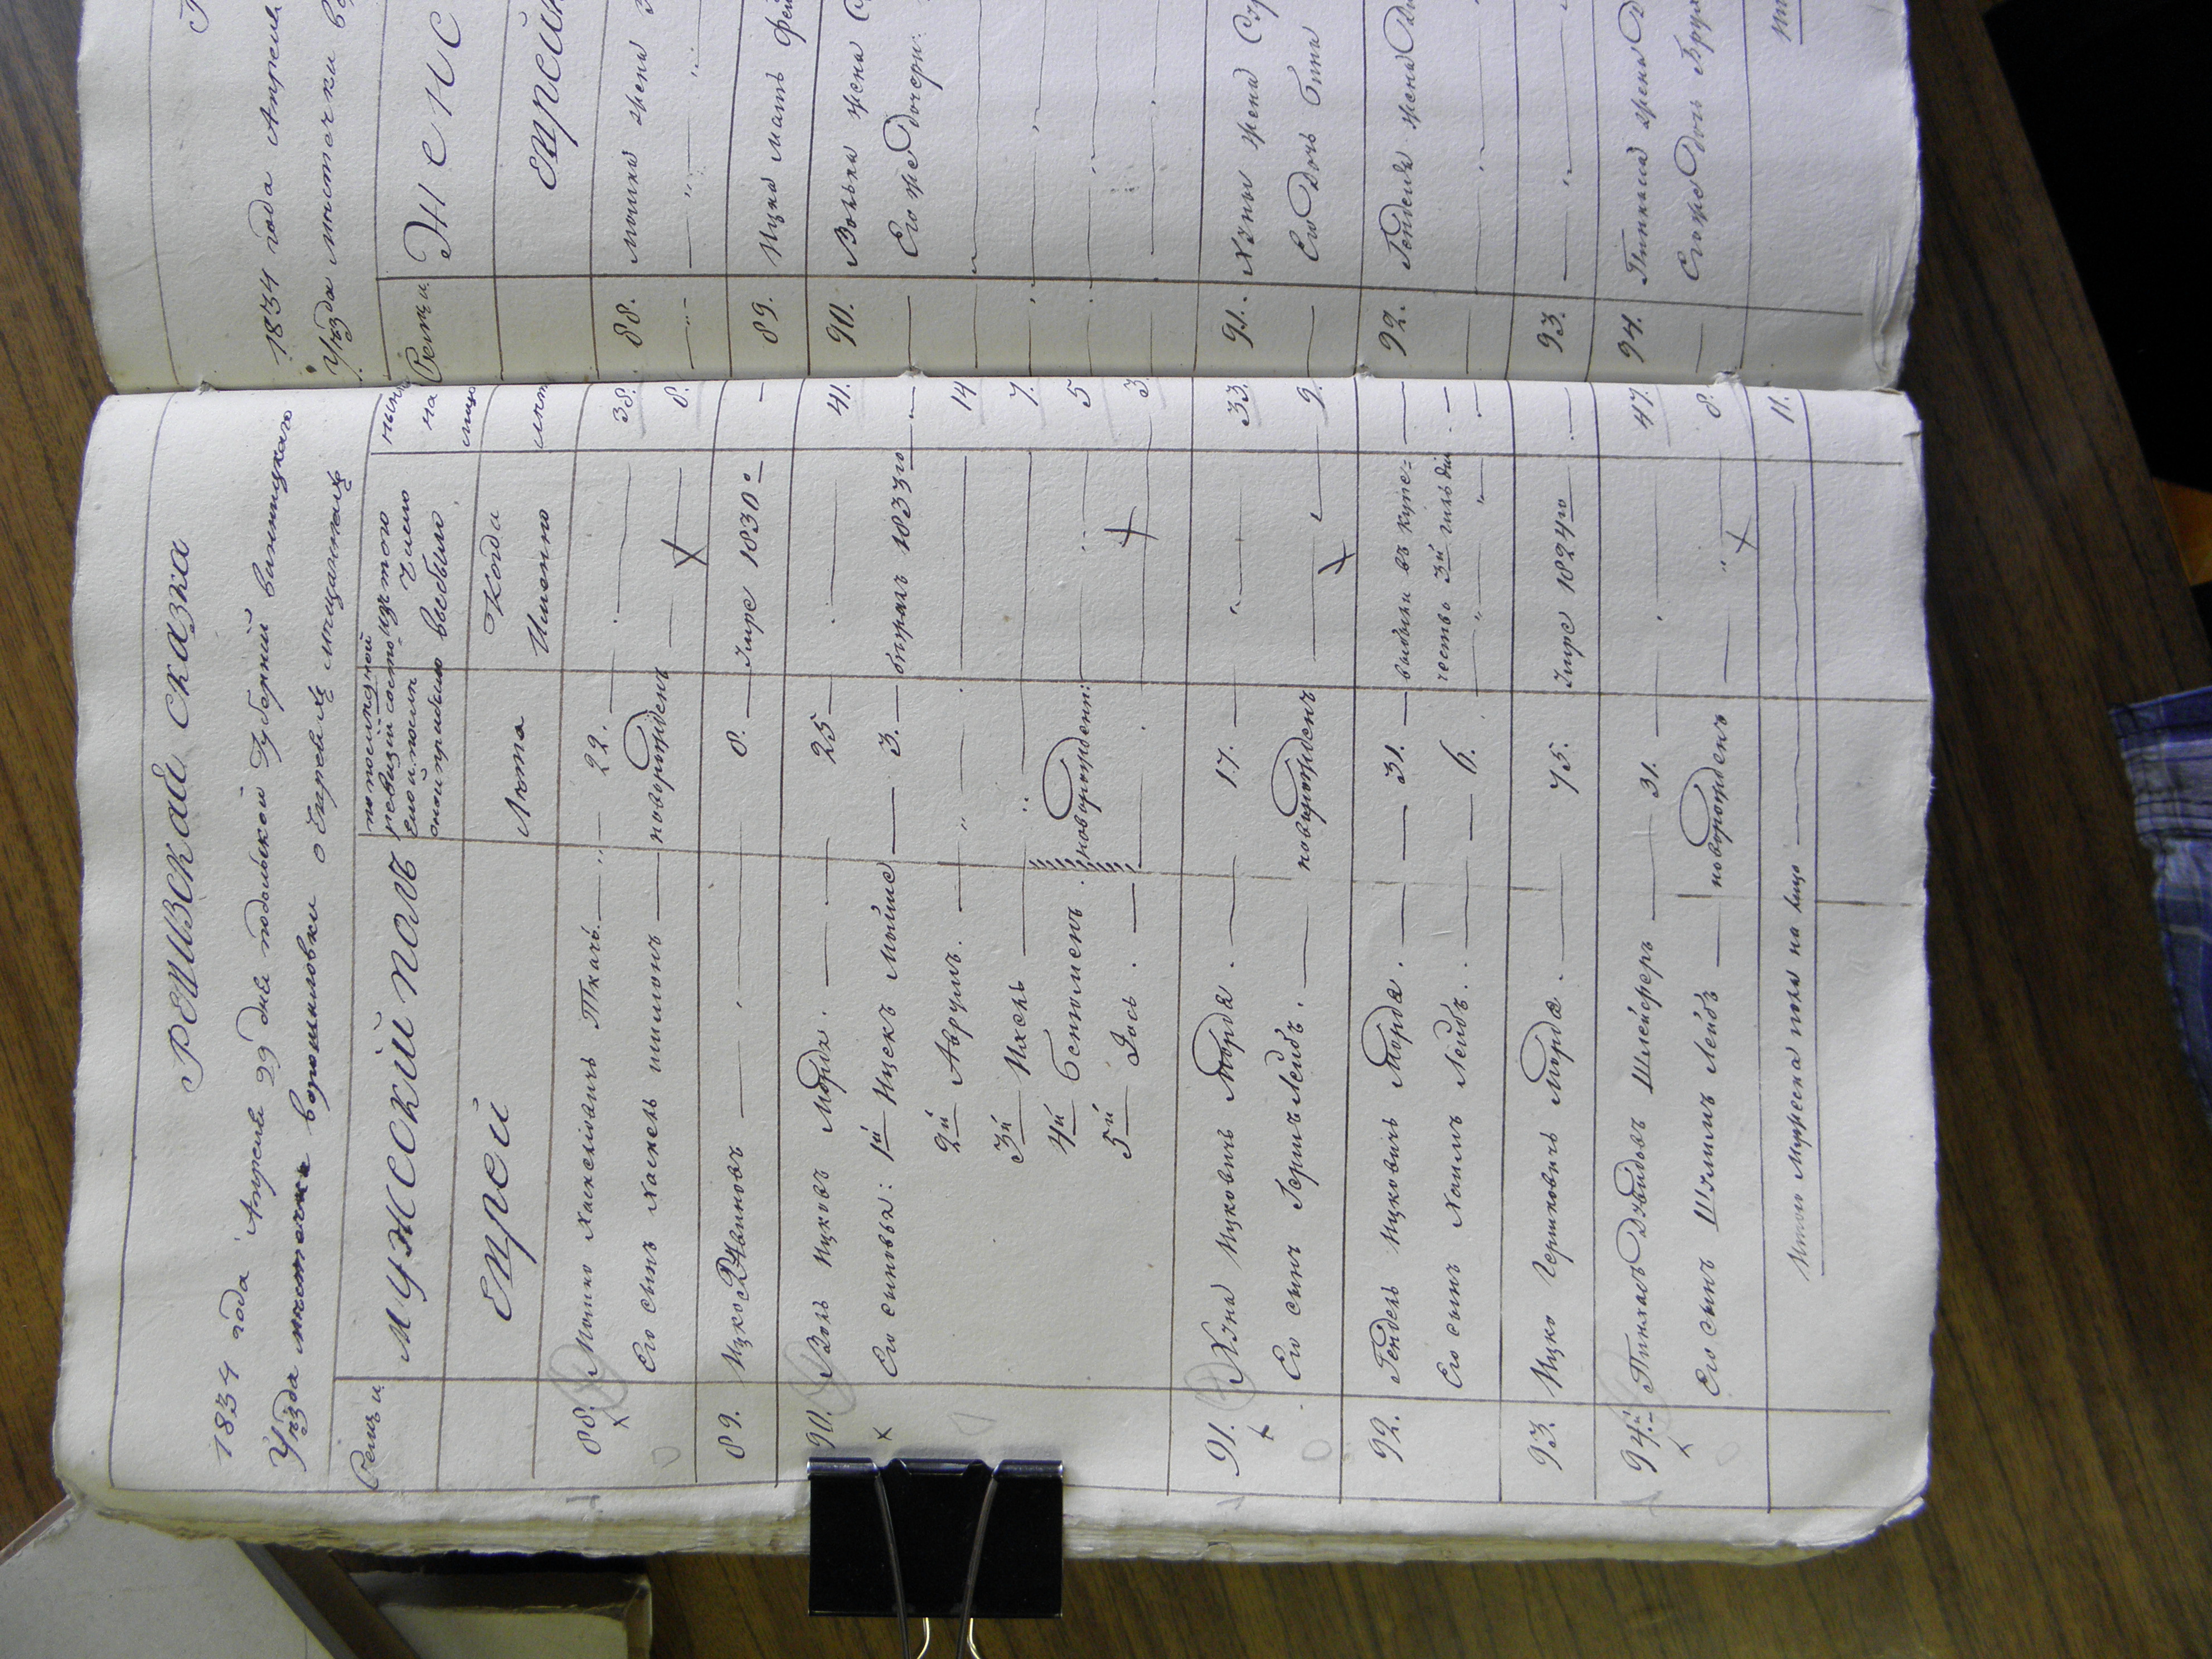 Ревизская сказка
1834 года Апреля 29 дня подольской Губерній винницкаго
Уѣзда мѣстечка ворошиловки о Евреяхъ мещанахъ
Семьи
Мужескій полъ
по послѣдней ревизіи состояло и послѣ оной прибыло
изъ того числа выбыло
нынѣ на лицо
Еврей
Лѣта
Когда Именно
лѣта
88. Мошко Хаскелiовичъ Ткачъ 22. 38.
Его сынъ Хаскель шиліонъ новорожденъ 8.
89. Ицко 8. Умре 1830го —
90. Воль Ицковъ Морда. 25 41.
Его сыновья: 1й Ицекъ Мойше 3. 1833го —
2й Аврумъ. 14
3й Ихель 7.
4й Бенюменъ. новорожденн: 5
5й Іось. 3
91. Хуна Ицковичъ Морда. 17. 33.
Его сынъ Гершъ Лейбъ. новорожденъ 9.
92. Гендель Ицковичъ Морда. 31. выбыли въ купе= —
Его сынъ Хаимъ Лейбъ. 6. чество 3й гильдіи —
93. Ицко Гершковичъ Морда. 75. Умре 1824го —
94. Пинхасъ Давидовъ Шлейферъ 31. 47.
Его сынъ Шулимъ Лейбъ новорожденъ 8.
Итого Мужеска пола на лицо 11.
1834 года Апреля
Уѣзда мѣстечка
Семьи
Женс
Еврей
88. Мошка жена
89. Ицка мать
90. Волька жена
Его же дочери:
91. Хуны жена
Его дочь Бина
92. Генделя жена
93.
94. Пинхаса жена
Его же дочь